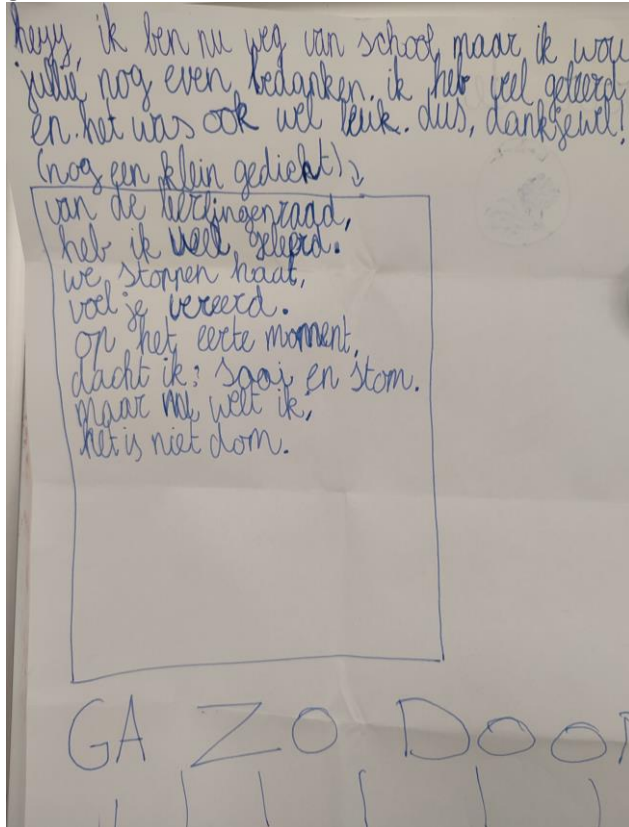 heyy, ik ben nu weg van school, maar ik wou
jullie nog even bedanken. ik heb veel geleerd
en het was ook wel leuk. dus, dankjewel!
(nog een klein gedicht)↓
van de leerlingenraad,
heb ik veel geleerd.
we stoppen haat,
voel je vereerd.
op het eerte moment,
dacht ik: saai en stom.
maar nu weet ik,
het is niet dom.
GA ZO DOOR